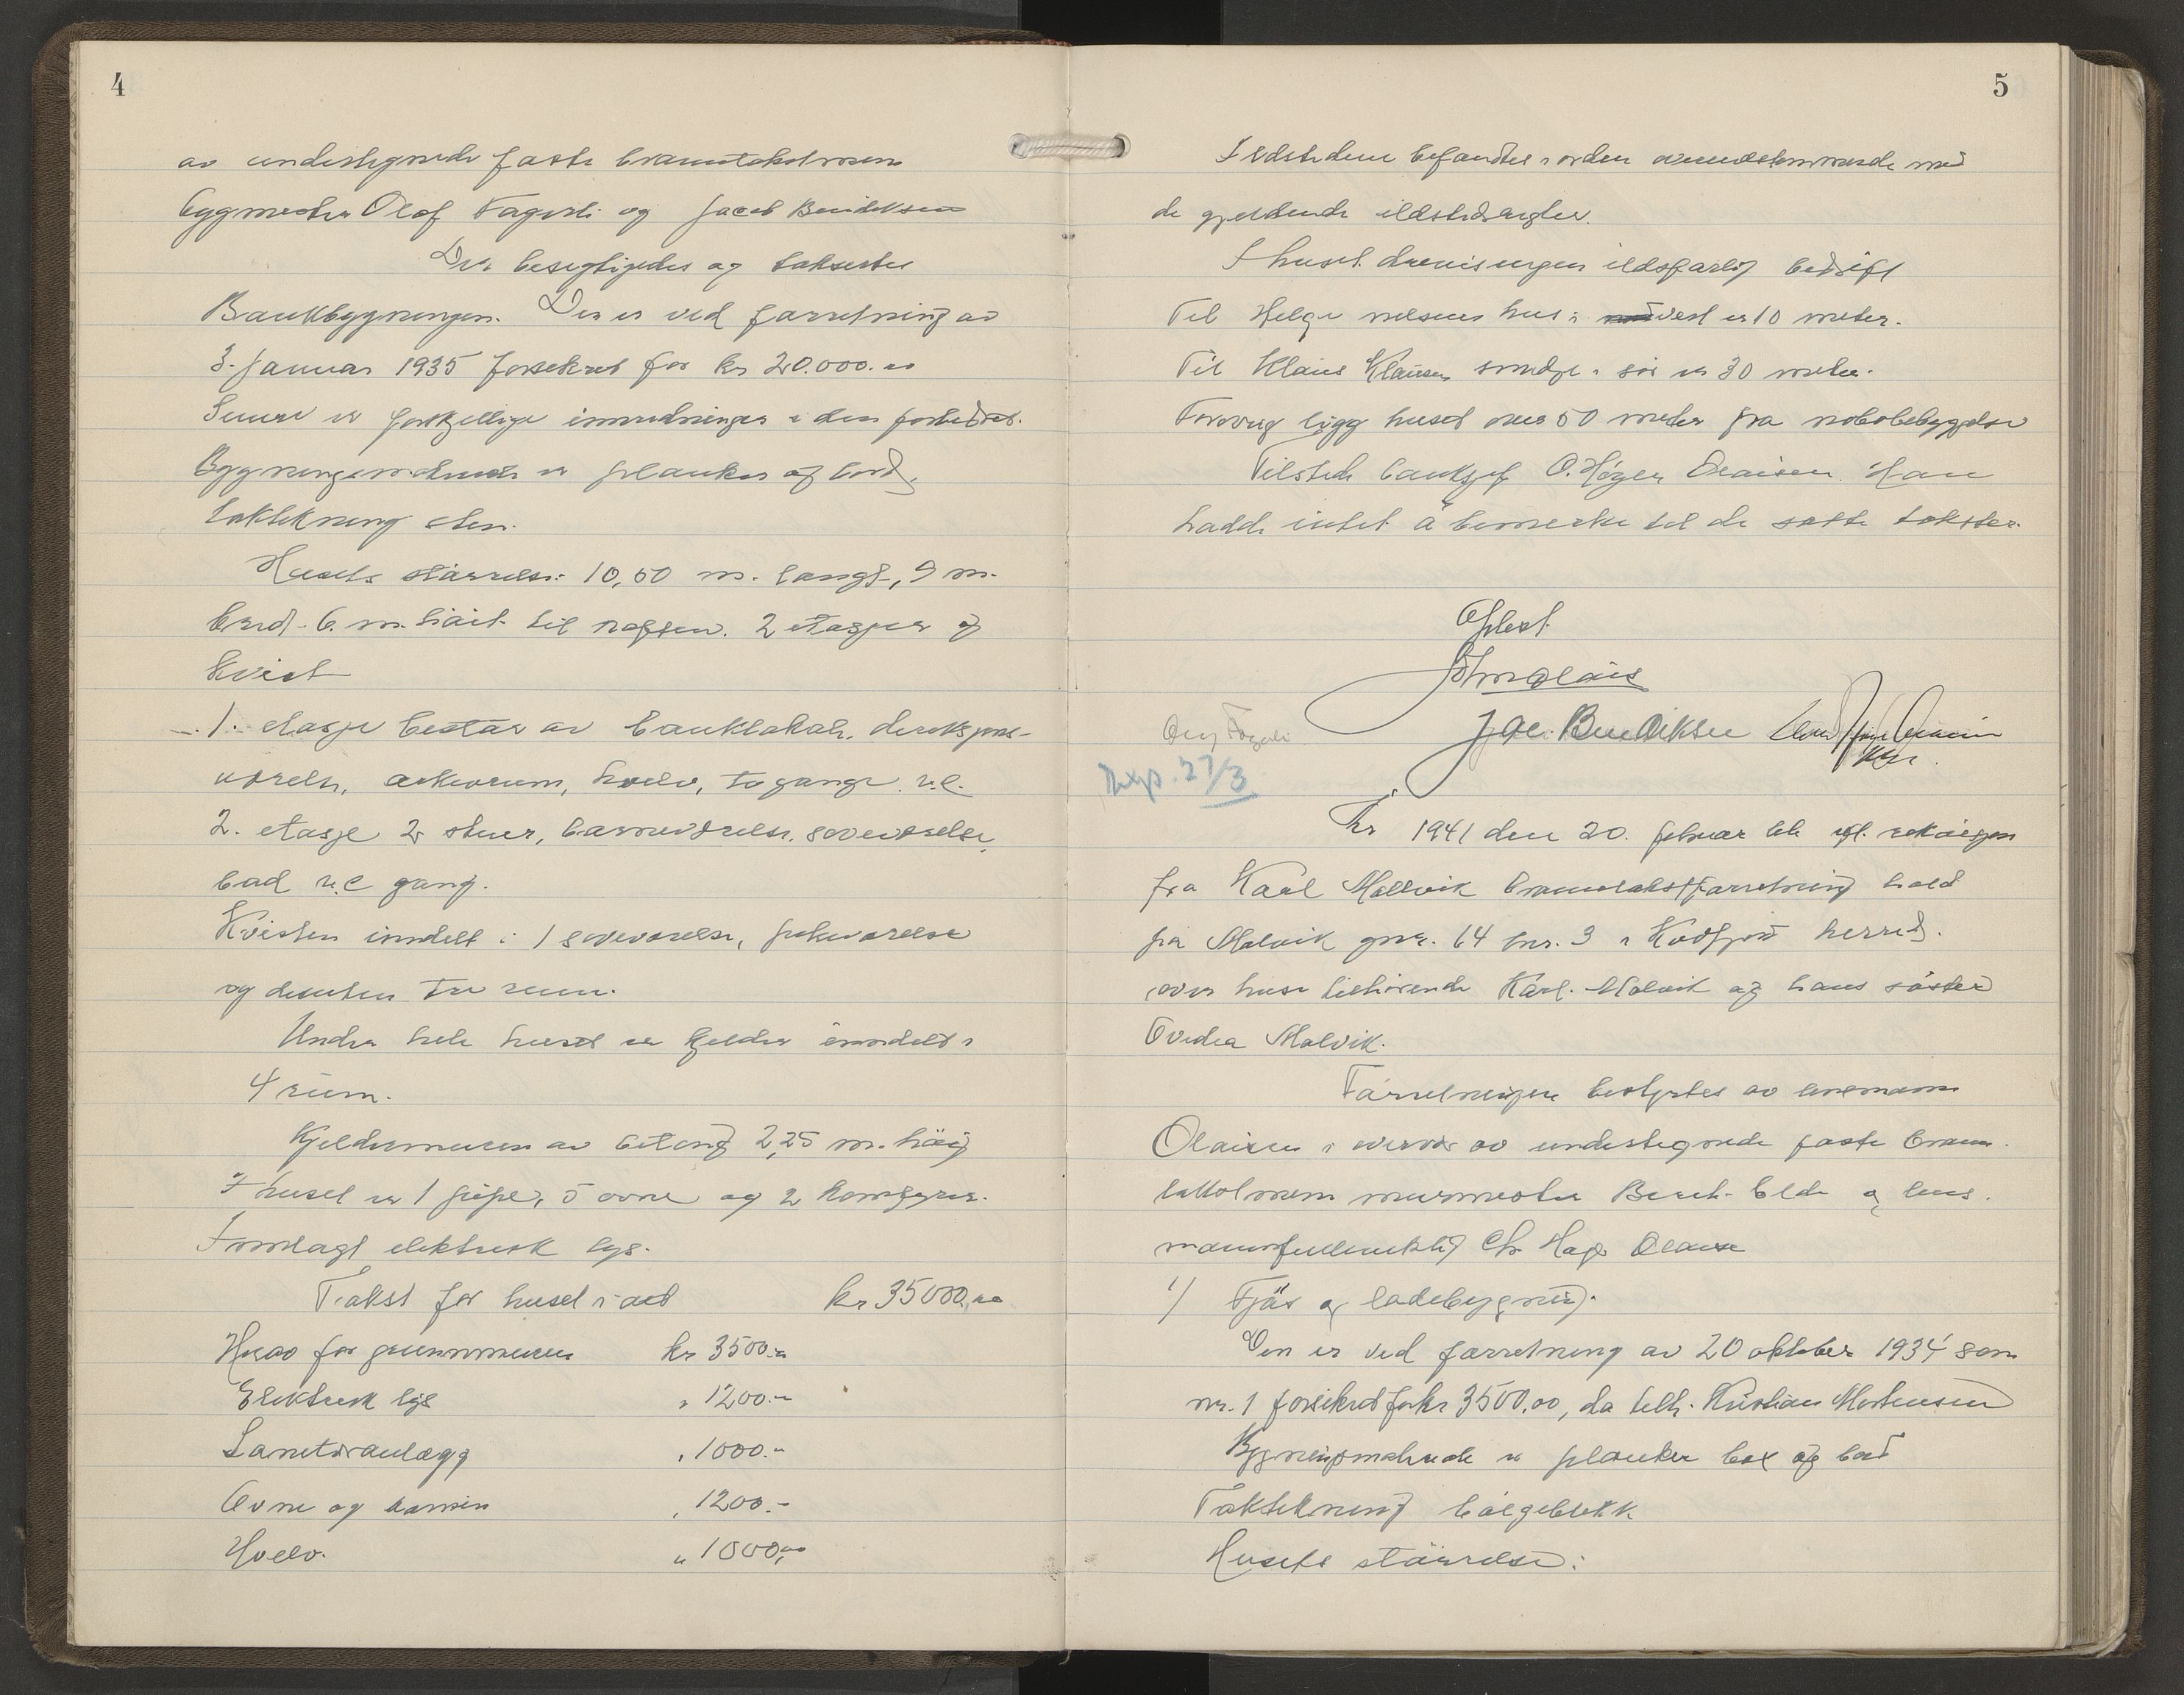 4
av undertegnede faste branntakstmenn
byggmester Olaf Fagerli og Jacob Bendiksen
Der besigtigedes og taksertes
Bankbygningen. Den er ved forretning av
3. januar 1935 forsekret for kr 20.000.00
Senere er forskjellige innredninger i den forbedret.
Bygningsmateriale er planker og bord,
taktekning sten.
Husets størrelse: 10,50 m. langt, 9 m.
bred - 6. m. høit til rafsen. 2 etasjer og
kvist
1. etasje består av banklokale, direksjons-
værelse, arkivrum, hvelv, to gange w.c.
2. etasje 2 stuer, barneværelse, soveværelse,
bad w.c gang.
Kvisten inndelt i 1 soveværelse, pikeværelse
og desuten tre rum.
Under hele huset er kjelder inndelt i
4 rum.
Kjeldermuren av betong 2,25 m. høi
I huset er 1 pipe, 5 ovne og 2 komfyrer.
Innlagt elektrisk lys.
Takst for huset i alt kr 35000.00
Herav for grunnmuren kr 3500.-
Elektrisk lys " 1200.-
Sanitæranlegg " 1000.-
Ovne og kamin " 1200.-
Hvelv. " 1000,00
5
Ildstedene befandtes i orden overensstemmende med
de gjeldende ildstedsregler.
I huset drevis ingen ildsfarlig bedrift
Til Helge Nelsens hus i vest er 10 meter.
Til Klaus Klausen smedje i sør er 30 meter.
Forøvrig ligg huset over 50 meter fra nobobebyggelse
Tilstede banksjef O. Høyer Olaisen. Han
hadde intet å bemerke til de satte takster.
Oplest
Johs Olais
Olaf Fagerli Jac. Bendiksen
Eksp. 27/3
År 1941 den 20. februar ble efter rekvisisjon
fra Karl Malvik branntakstforretning hold
på Malvik gnr. 64 bnr. 3 i Kvæfjord herred.
over huse tilhørende Karl Malvik og hans søster
Ovedia Malvik.
Forretningen bestyrtes av lensmann
Olaisen i overvær av undertegnede faste brann-
takstmenn murmester Berth. Elde og lens-
mannsfullmektig Chr. Høyer Olaisen
1/ Fjøs og ladebygning.
Den er ved forretning av 20 oktober 1934 som
nr. 1 forsikret for kr 3500,00, da tilh. Kristian Mortensen
Bygningsmateriale er planker box og bord
Taktekning bølgeblekk
Husets størrelse: